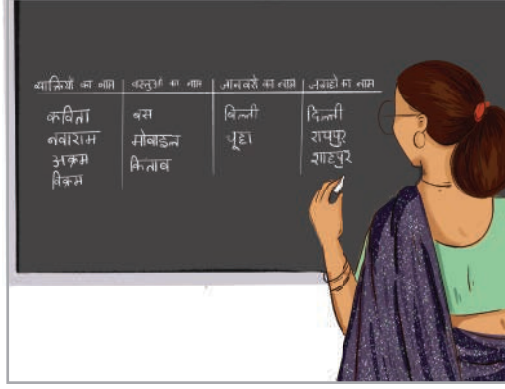 व्यक्तियों का नाम वस्तुओं का नाम जानवरों का नाम जगहों का नाम
कविता बस बिल्ली दिल्ली
नवाराम मोबाइल चूहा रायपुर
अक्रम किताब शाहपुर
विक्रम